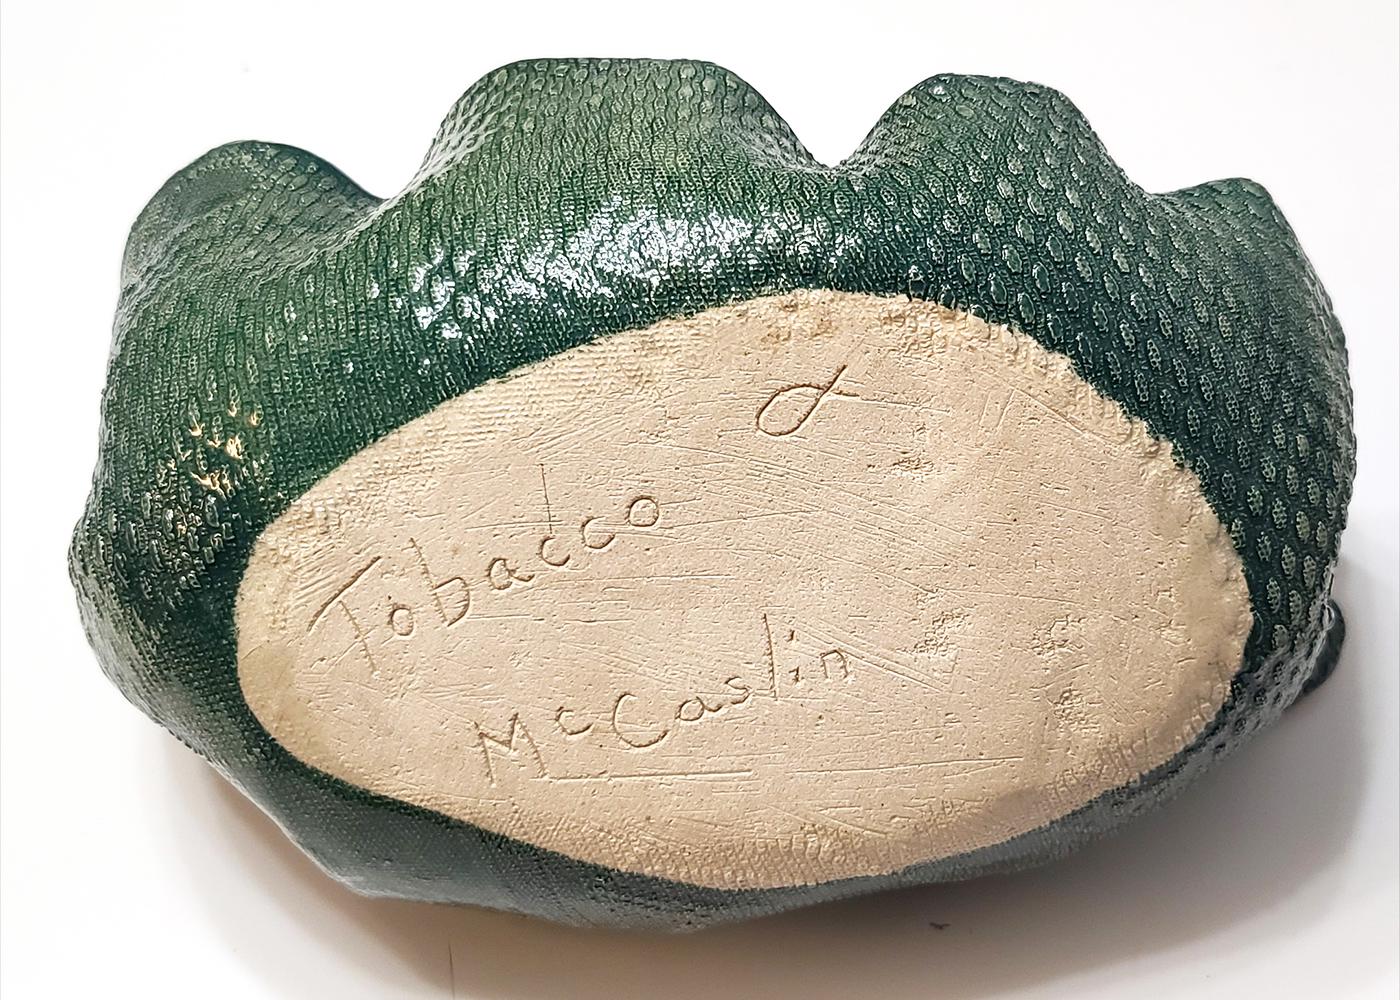 α
Tobacco
McCaslin